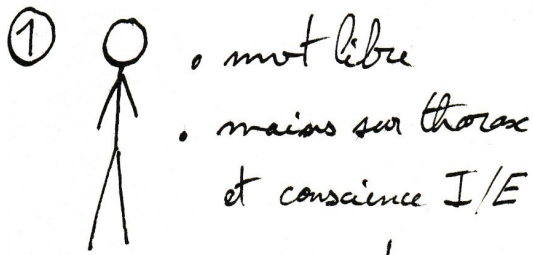 ① • mot libre
• mains sur thorax
et conscience I/E